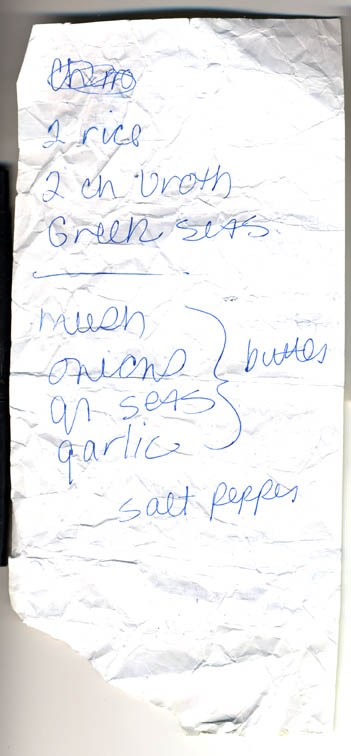 2 rice
2 ch broth
Green seas
mush
onions
butter
gr seas
garlic
salt pepper